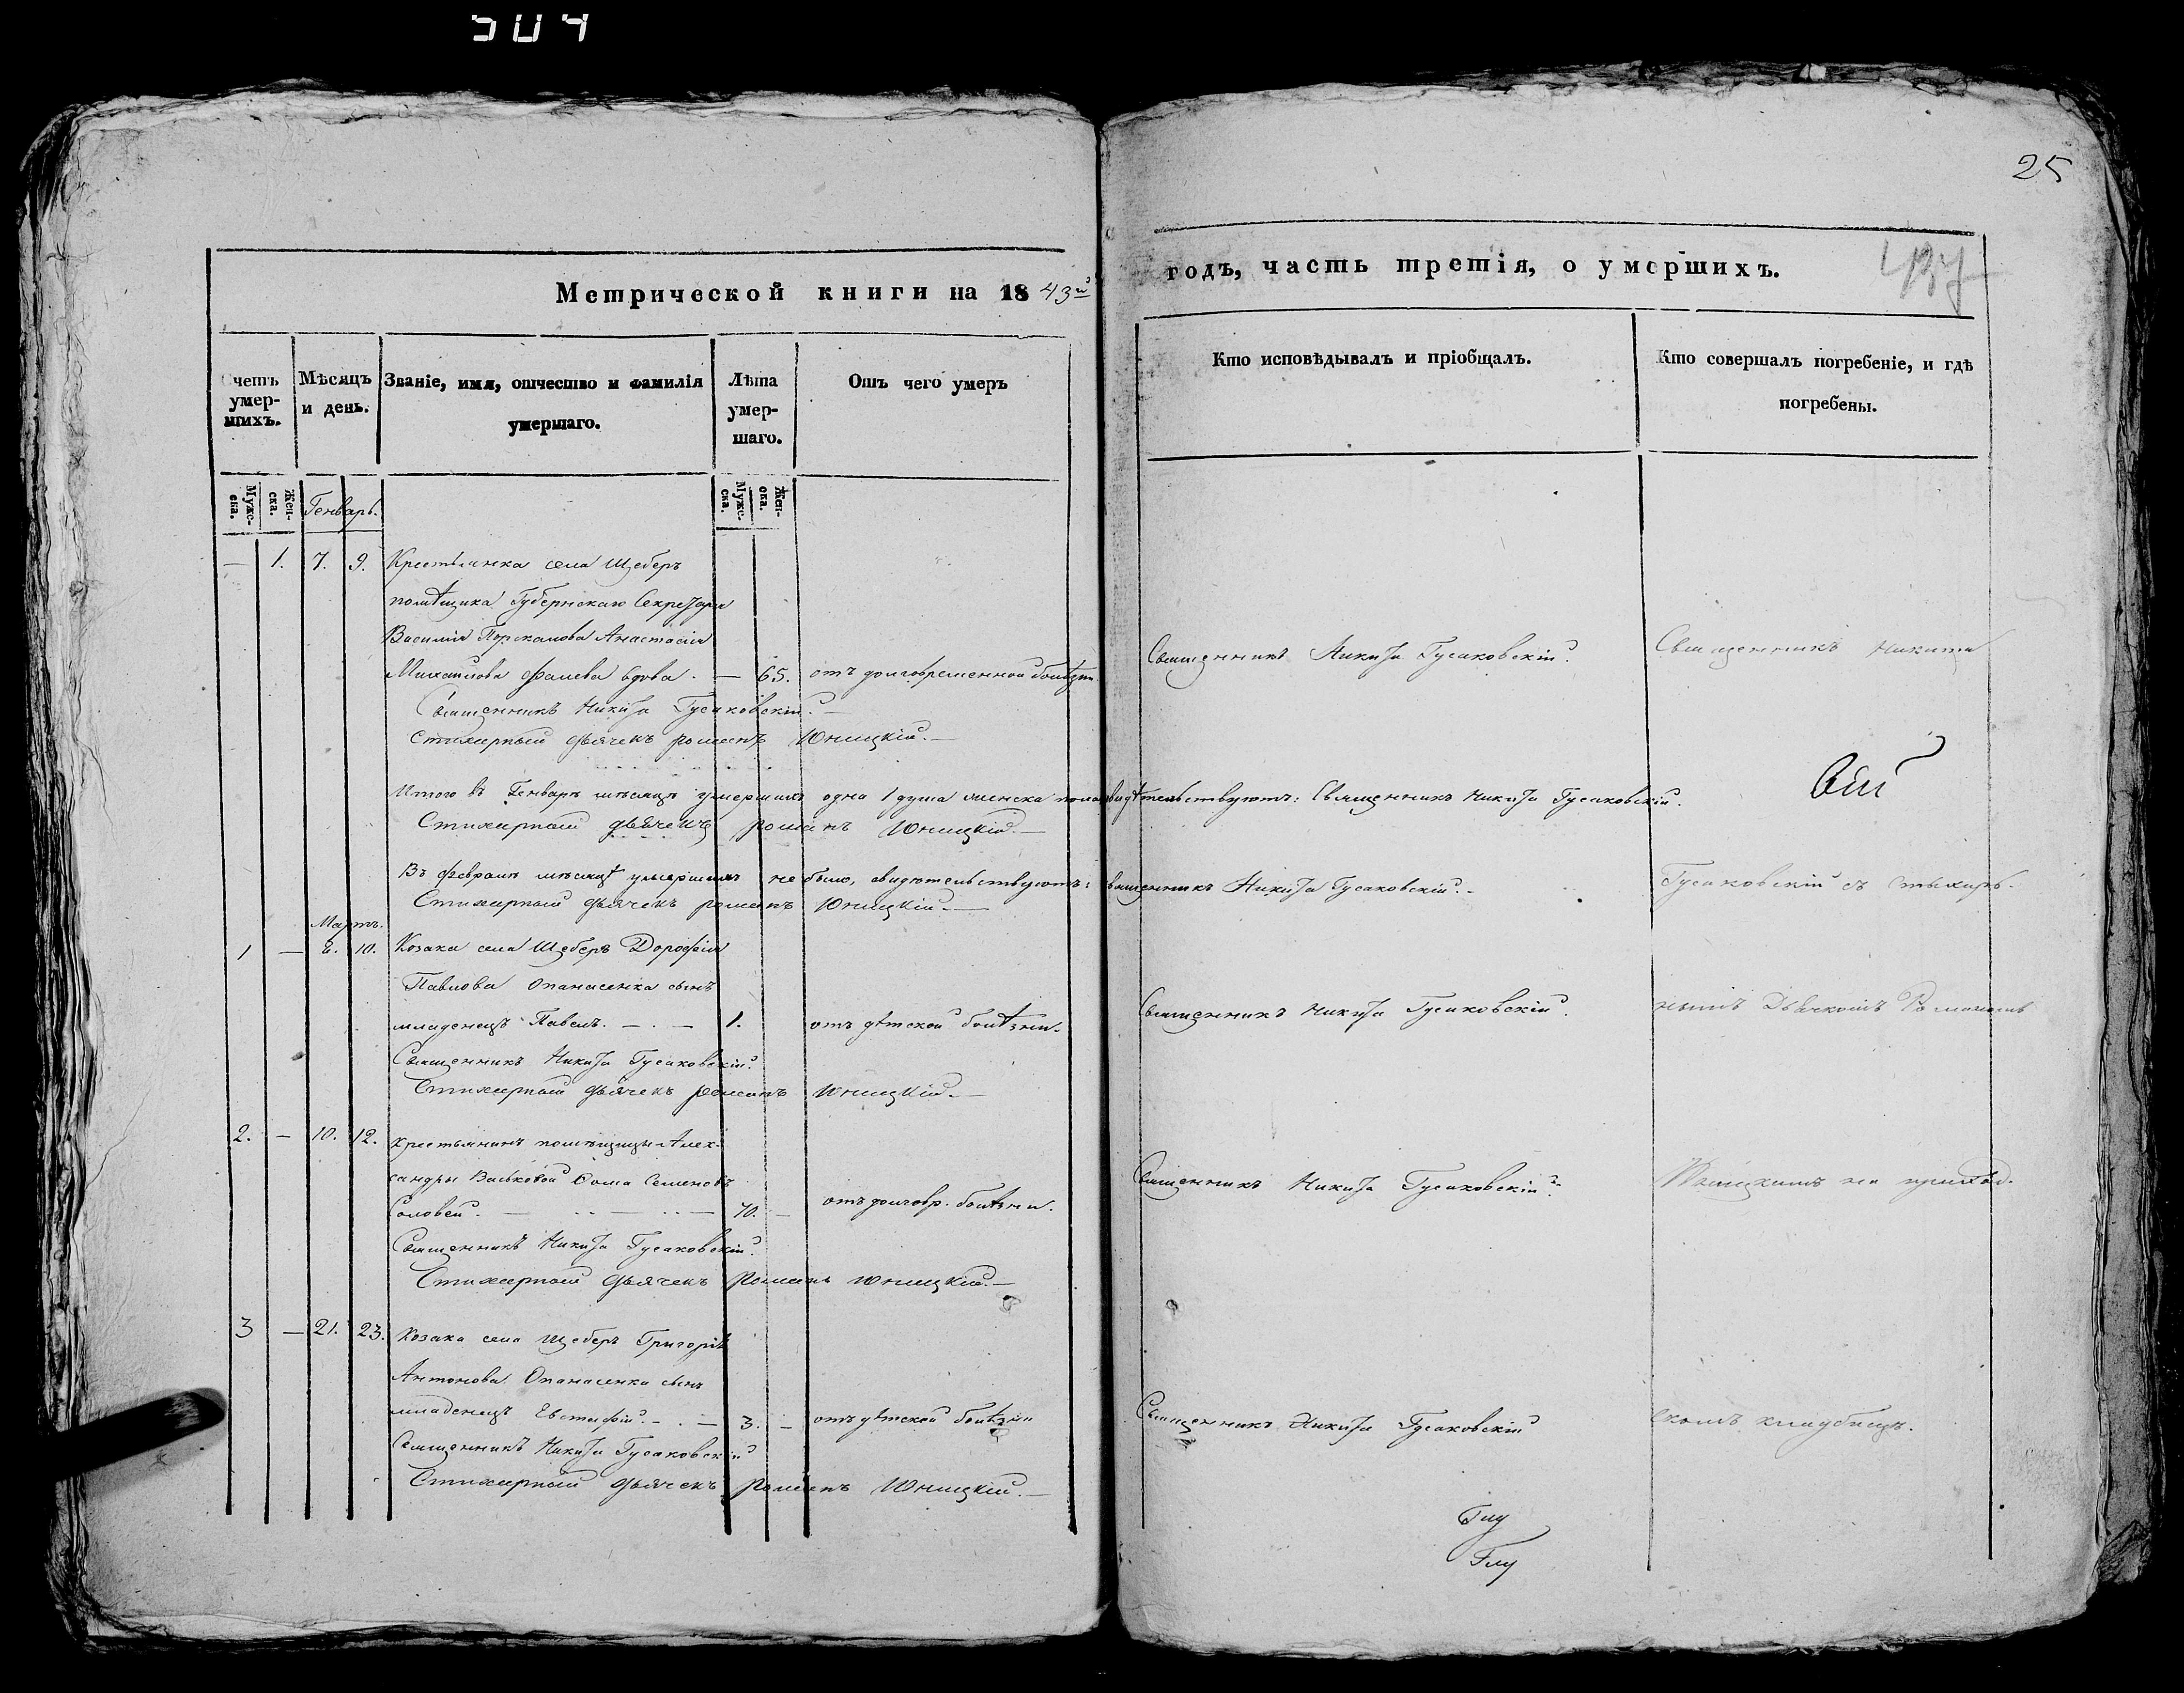 504
25
Метрической книги на 1843й
годъ, часть третія, о умершихъ.
Счетъ умер-
шихъ.
Мѣсяцъ
и день.
Званіе, имя, отчество и фамилія
умершаго.
Лѣта
умер-
шаго.
Отъ чего умеръ
Кто исповѣдывалъ и пріобщалъ.
Кто совершалъ погребеніе, и гдѣ
погребены.
Мужс-
ска.
Жен-
ска.
Генварь.
Мужс-
ска.
Жен-
ска.
— 1. 7. 9. Крестьянка села Щеберъ
помѣщика Губернскаго Секретаря
Василія Анастасія
Михайлова вдова. — 65. отъ долговременной болѣзни.
Священникъ Никита Гусаковскій.
Священникъ Никита
Священникъ Никита Гусаковскій.—
Стихарный дьячекъ Романъ Юницкій.—
Итого въ Генварѣ мѣсяцѣ умершихъ одна 1 душа женска пола свидѣтельствуютъ: Священникъ Никита Гусаковскій.
Стихарный дьячекъ Романъ Юницкій.—
Въ Февралѣ мѣсяцѣ умершихъ не было, свидѣтельствуютъ: Священникъ Никита Гусаковскій.—
Гусаковскій съ стихар-
Стихарный дьячекъ Романъ Юницкій.—
Мартъ.
1 — 8. 10. Козака села Щеберъ Дорофія
Павлова Опанасенка сынъ
младенецъ Павелъ. — . — 1. отъ дѣтской болѣзни.
Священникъ Никита Гусаковскій.
нымъ Дьячкомъ Романомъ
Священникъ Никита Гусаковскій.
Стихарный дьячекъ Романъ Юницкій.—
2. — 10. 12. Крестьянинъ помѣщицы Алек-
сандры Вальковой Фома Семеновъ
Соловей. — 70. — отъ долговр. болѣзни.
Священникъ Никита Гусаковскій.
Юницкимъ на приход-
Священникъ Никита Гусаковскій.
Стихарный дьячекъ Романъ Юницкій.—
3 — 21. 23. Козака села Щеберъ Григорія
Антонова Опанасенка сынъ
младенецъ Евстафій. — . — 3. — отъ дѣтской болѣзни
Священникъ Никита Гусаковскій
скомъ кладбищѣ.
Священникъ Никита Гусаковскій
Стихарный дьячекъ Романъ Юницкій.—